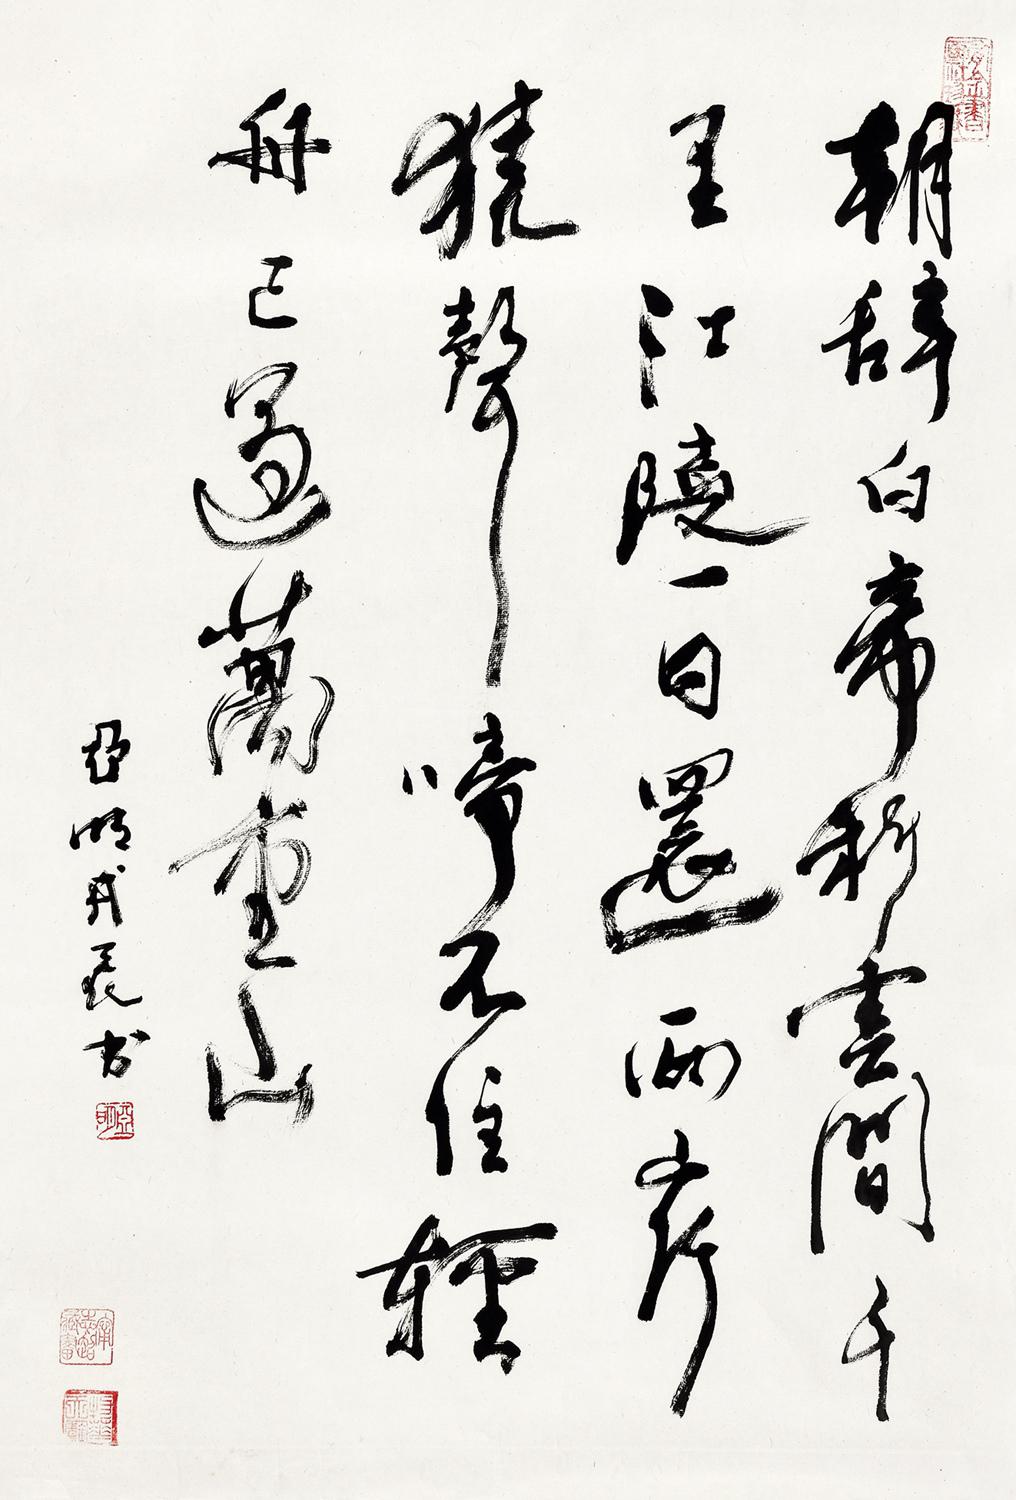 朝辞白帝彩雲間千
里江陵一日還兩岸
猿聲啼不住輕
舟已過萬重山
亞明戊辰书
亞明